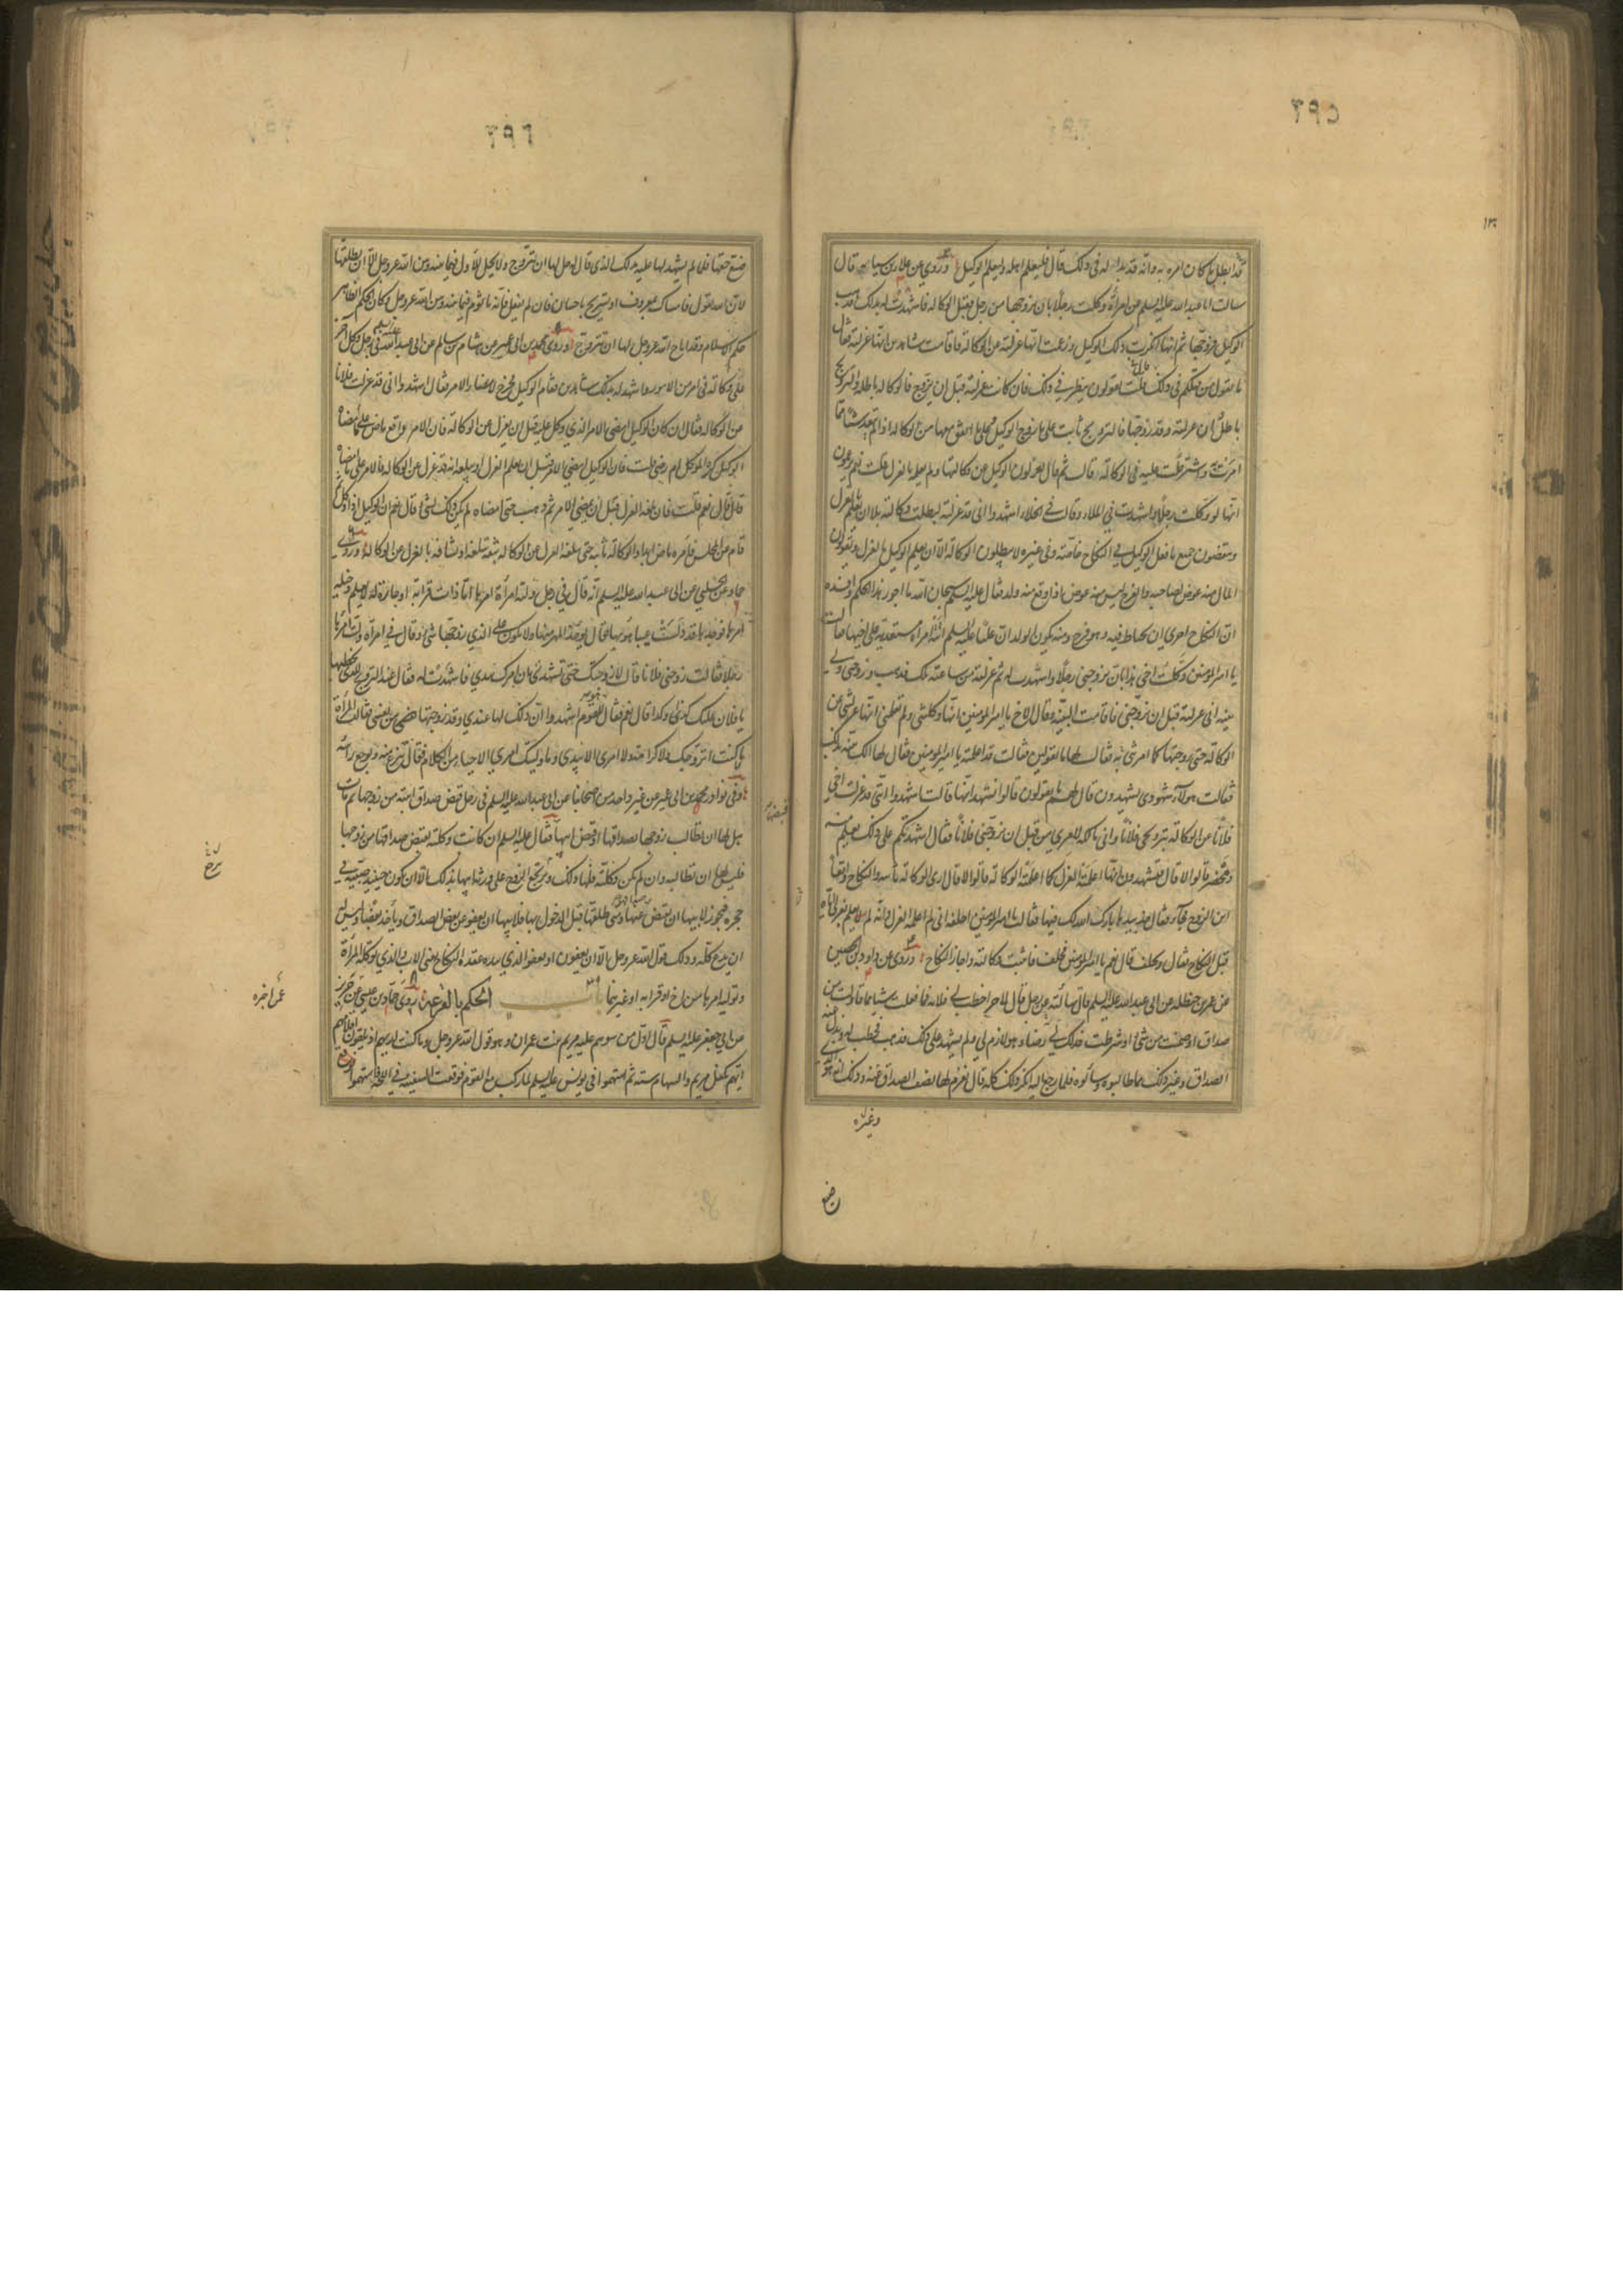 ٢٩٥
قد ابطل ما كان امره به وانه قد بدا له في ذلك قال فليعلم اهله وليعلم الوكيل وروي عن علاء بن سيابه قال
سالت ابا عبد الله عليه السلم عن امرأة وكلت رجلا بان يزوجها من رجل فقبل الوكالة فاشهدت له بذلك فذهب
الوكيل فزوجها ثم انها انكرت ذلك الوكيل وزعمت انها عزلته عن الوكالة فاقامت شاهدين انها عزلته فقال
ما يقول من قبلكم في ذلك قلت يقولون ينظر في ذلك فان كانت عزلته قبل ان يزوج فالوكالة باطلة والتزويج
باطل وان عزلته وقد زوجها فالتزويج ثابت على ما زوج الوكيل وعلى ما اتفق معها من الوكالة اذا لم يتعد شيئا مما
امرت به واشترطت عليه في الوكالة قال ثم قال يعزلون الوكيل عن وكالتها ولم يعلم بالعزل قلت نعم يزعمون
انها لو وكلت رجلا واشهدت في الملاء وقالت في الخلاء اشهدوا اني قد عزلته ابطلت وكالته بلا ان يعلم بالعزل
وينقضون جميع ما فعل الوكيل في النكاح خاصة وفي غيره لا يبطلون الوكالة الا ان يعلم الوكيل بالعزل ويقولون
المال منه عوض لصاحبه والفرج ليس منه عوض اذا وقع منه ولد فقال عليه السلم سبحان الله ما اجور هذا الحكم وافسده
ان النكاح احرى ان يحتاط فيه وهو فرج ومنه يكون الولد ان عليا عليه السلم اتته امرأة مستعدية على اخيها فقالت
يا امير المؤمنين وكلت اخي هذا بان يزوجني رجلا واشهدت له ثم عزلته من ساعته تلك فذهب وزوجني ولي
بينة اني عزلته قبل ان يزوجني فاقامت البينة فقال الاخ يا امير المؤمنين انها وكلتني ولم تعلمني انها عزلتني عن
الوكالة حتى زوجتها كما امرتني به فقال لها ما تقولين قالت قد اعلمته يا امير المؤمنين فقال لها الك بينة بذلك
فقالت هؤلاء شهودي يشهدون قال لهم ما تقولون قالوا نشهد انها قالت اشهدوا اني قد عزلت اخي
فلانا عن الوكالة بتزويجي فلانا واني مالكة لامري من قبل ان يزوجني فلانا فقال اشهدتكم على ذلك بعلم منه
ومحضر قالوا لا قال فتشهدون انها اعلمته العزل كما اعلمته الوكالة قالوا لا قال ارى الوكالة ثابتة والنكاح واقعا
اين الزوج فجاء فقال خذ بيدها بارك الله لك فيها فقالت يا امير المؤمنين احلفه اني لم اعلمه العزل وانه لم يعلم بعزلي اياه
قبل النكاح فقال وتحلف قال نعم يا امير المؤمنين فحلف فاثبت وكالته واجاز النكاح وروي عن داود بن الحصين
عن عمر بن حنظله عن ابي عبد الله عليه السلم قال سألته عن رجل قال لآخر اخطب لي فلانة فما فعلت شيئا مما قاولت من
صداق او ضمنت من شيء او شرطت فذلك لي رضاء وهو لازم لي ولم يشهد على ذلك فذهب فخطب له وبذل عنه
الصداق وغير ذلك مما طالبوه وسألوه فلما رجع اليه انكر ذلك كله قال يغرم لها نصف الصداق عنه وذلك انه هو الذي
٢٩٦
ضيع حقها فلما لم يشهد لها عليه بذلك الذي قال له حل لها ان تتزوج ولا يحل للاول فيما بينه وبين الله عز وجل الا ان يطلقها
لان الله يقول فامساك بمعروف او تسريح باحسان فان لم يفعل فانه مأثوم فيما بينه وبين الله عز وجل وكان الحكم الظاهر
حكم الاسلام وقد اباح الله عز وجل لها ان تتزوج وروى محمد بن ابي عمير عن هشام بن سالم عن ابي عبد الله عليه السلم في رجل وكل آخر
على وكالة في امر من الامور واشهد له بذلك شاهدين فقام الوكيل فخرج لامضاء الامر فقال اشهدوا اني قد عزلت فلانا
عن الوكالة فقال ان كان الوكيل امضى الامر الذي وكل عليه قبل ان يعزل عن الوكالة فان الامر واقع ماض على ما امضاه
الوكيل كره الموكل ام رضي قلت فان الوكيل امضى الامر قبل ان يعلم العزل او يبلغه انه قد عزل عن الوكالة فالامر على ما امضاه
قال نعم قلت فان بلغه العزل قبل ان يمضي الامر ثم ذهب حتى امضاه لم يكن ذلك بشيء قال نعم ان الوكيل اذا وكل ثم
قام عن المجلس فامره ماض ابدا والوكالة ثابتة حتى يبلغه العزل عن الوكالة بثقة يبلغه او يشافه بالعزل عن الوكالة وروى
حماد عن الحلبي عن ابي عبد الله عليه السلم انه قال في رجل ولته امرأة امرها اما ذات قرابة او جارة له لا يعلم دخيلة
امرها فوجدها قد دلست عيبا هو بها قال يؤخذ المهر منها ولا يكون على الذي زوجها شيء وقال في امرأة ولت امرها
رجلا فقالت زوجني فلانا قال لا زوجتك حتى تشهدي بان امرك بيدي فاشهدت له فقال عند التزويج للذي يخطبها
يا فلان عليك كذا وكذا قال نعم فقال للقوم اشهدوا ان ذلك لها عندي وقد زوجتها من نفسي فقالت المرأة
ما كنت اتزوجك ولا كرامة ولا امري الا بيدي وما وليتك امري الا حياء من الكلام قال تنزع منه ويوجع رأسه
وفي نوادر محمد بن ابي عمير عن غير واحد من اصحابنا عن ابي عبد الله عليه السلم في رجل قبض صداق ابنته من زوجها ثم مات
هل لها ان تطالب زوجها بصداقها او قبض ابيها قبضها فقال عليه السلم ان كانت وكلته بقبض صداقها من زوجها
فليس لها ان تطالبه وان لم تكن وكلته فلها ذلك ويرجع الزوج على ورثة ابيها بذلك الا ان تكون حينئذ صبية في
حجره فيجوز لابيها ان يقبض عنها ومتى طلقها قبل الدخول بها فلابيها ان يعفو عن بعض الصداق ويأخذ بعضا وليس له
ان يدع كله وذلك قول الله عز وجل الا ان يعفون او يعفو الذي بيده عقدة النكاح يعني الاب والذي توكله المرأة
وتوليه امرها من اخ او قرابه او غيرهما باب الحكم بالقرعة روى حماد بن عيسى عن حريز
عمن اخبره
عن ابي جعفر عليه السلم قال اول من سوهم عليه مريم بنت عمران وهو قول الله عز وجل وما كنت لديهم اذ يلقون اقلامهم
ايهم يكفل مريم والسهام ستة ثم استهموا في يونس عليه السلم لما ركب مع القوم فوقعت السفينة في اللجة فاستهموا
وغيره